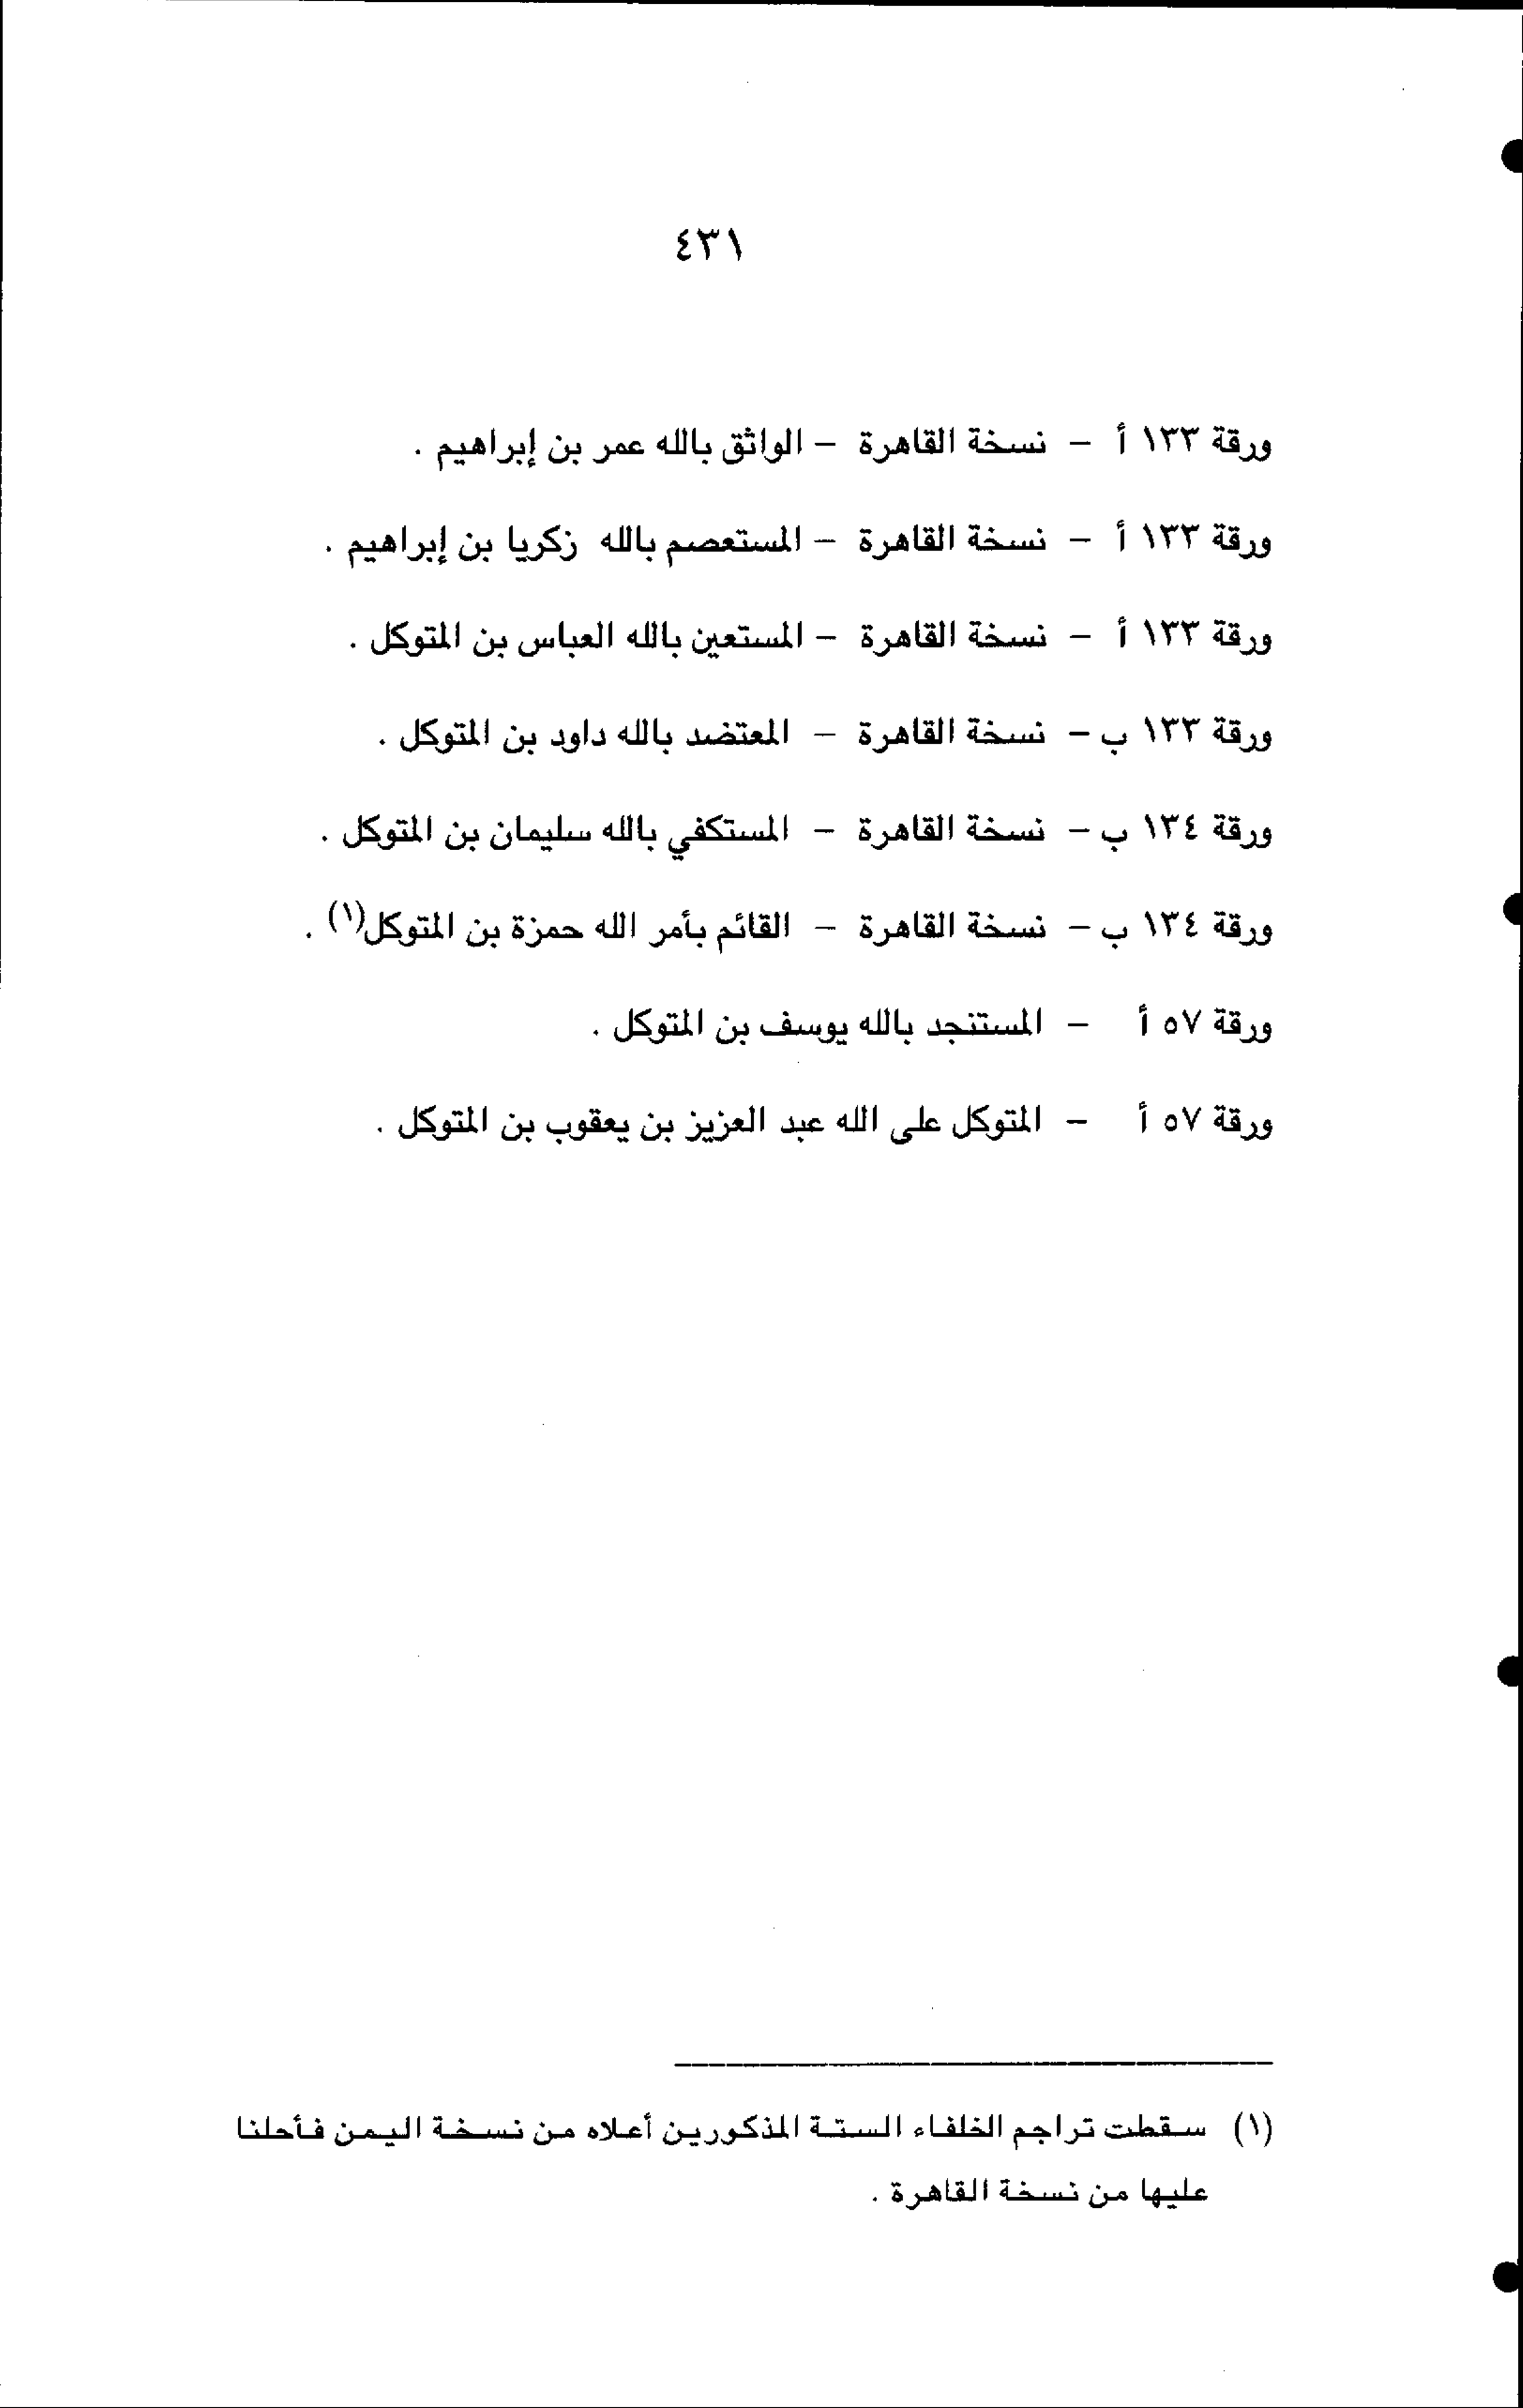 ٤٣١
ورقة ١٣٣ أ – نسخة القاهرة – الواثق بالله عمر بن إبراهيم .
ورقة ١٣٣ أ – نسخة القاهرة – المستعصم بالله زكريا بن إبراهيم .
ورقة ١٣٣ أ – نسخة القاهرة – المستعين بالله العباس بن المتوكل .
ورقة ١٣٣ ب – نسخة القاهرة – المعتضد بالله داود بن المتوكل .
ورقة ١٣٤ ب – نسخة القاهرة – المستكفي بالله سليمان بن المتوكل .
ورقة ١٣٤ ب – نسخة القاهرة – القائم بأمر الله حمزة بن المتوكل(١) .
ورقة ٥٧ أ – المستنجد بالله يوسف بن المتوكل .
ورقة ٥٧ أ – المتوكل على الله عبد العزيز بن يعقوب بن المتوكل .
(١) سقطت تراجم الخلفاء الستة المذكورين أعلاه من نسخة اليمن فأحلنا
عليها من نسخة القاهرة .